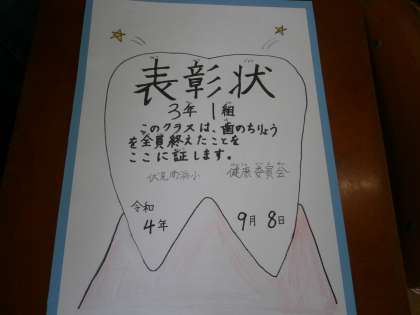 表彰状
3年1組
このクラスは、歯のちりょう
を全員終えたことを
ここに証します。
伏見南浜小 健康委員会
令和
4年 9月8日